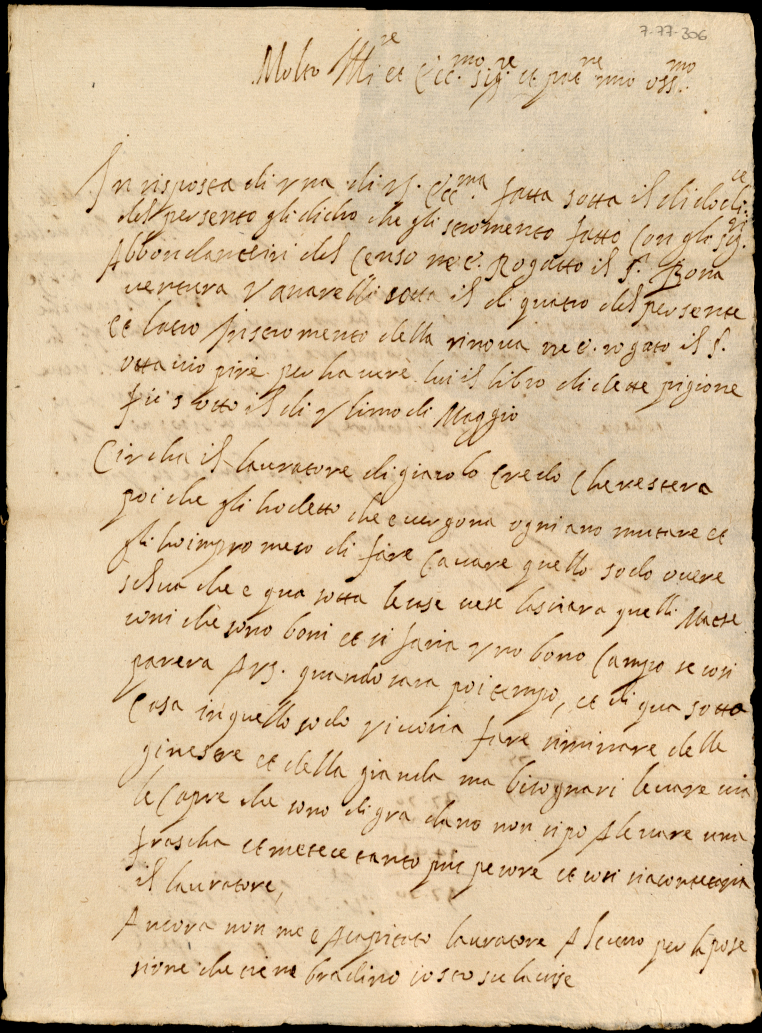 7-77-306
Molto Ill.re et Ecc.mo sig.re et pne mio oss.mo
In risposta di una di V.S. Ecc.ma fatta sotta il di dodici
del persento gli dicho che gli stromento fatto con gli sig.ri
Abbondantiri del Censo ne è Rogatto il S.r Bona
ventura Vanarelli sotta il di quatro del persente
et latro Instromento della rinova ne è rogato il S.
ottavio pire per havere lui il libro di dette prigione
fu sotto il di Vltimo di Maggio
Circha il lauratore di giacolo Credo che restera
poi che gli ho detto che e vergona ogni ano mutare et
gli ho impromeso di fare Cavare quello sodo overe
selva che e qua sotta le case vese lasciara quelli
coni che sono boni et si faria vno bono Campo se cosi
parera A V.S. quando sara poi tempo, et di qua sotto
Casa in quello sodo vi voria fare siminare delle
ginestre et della gianda ma bisognari levare via
le Capre che sono di gra dano non si po Alevare una
frascha et metece tanto più pecore et cosi si acontetaria
il lauratore,
Ancora non me è Acapitato lauratore Alcuno per la pose
sione che tiene bradino io sto su lavise